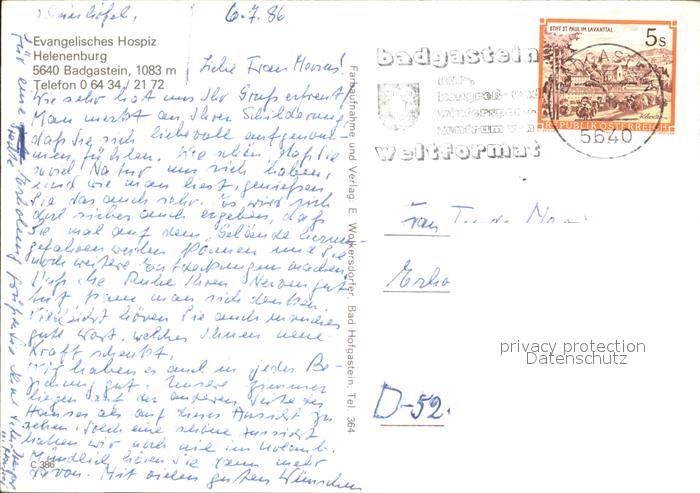 6.7.86
Evangelisches Hospiz
Helenenburg
5640 Badgastein, 1083 m
Telefon 0 64 34 / 21 72
Liebe Frau
Wie sehr hat uns Ihr Gruß erfreut!
Man merkt an Ihrer Schilderung,
daß Sie sich liebevoll aufgenom-
men fühlen. Wie schön, daß Sie
soviel Natur um sich haben,
und wie man liest, genießen
Sie das auch sehr. Es wird sich
sicher auch ergeben, daß
Sie mal auf dem Gelände herum-
gefahren werden können und Sie
noch weitere Entdeckungen machen.
Daß die Ruhe Ihren Nerven gut
tut kann man sich denken.
Vielleicht hören Sie auch manches
gute Wort, welches Ihnen neue
Kraft schenkt.
Wir haben es auch in jeder Be-
ziehung gut. Unsere Zimmer
liegen auf der anderen Seite des
Hauses als auf dieser Ansicht zu
sehen. Solch eine schöne Aussicht
hatten wir noch nie im Urlaub.
Mündlich hören Sie dann mehr
davon. Mit vielen guten Wünschen
für eine gute Erholung
C 386
Farbaufnahme und Verlag: E. Wolkersdorfer, Bad Hofgastein, Tel. 364
badgastein
kur-,
kongreß- und
wintersport-
zentrum von
weltformat
STIFT ST. PAUL IM LAVANTTAL
5 S
REPUBLIK ÖSTERREICH
BADGASTEIN
5640
Frau
D-52
privacy protection
Datenschutz